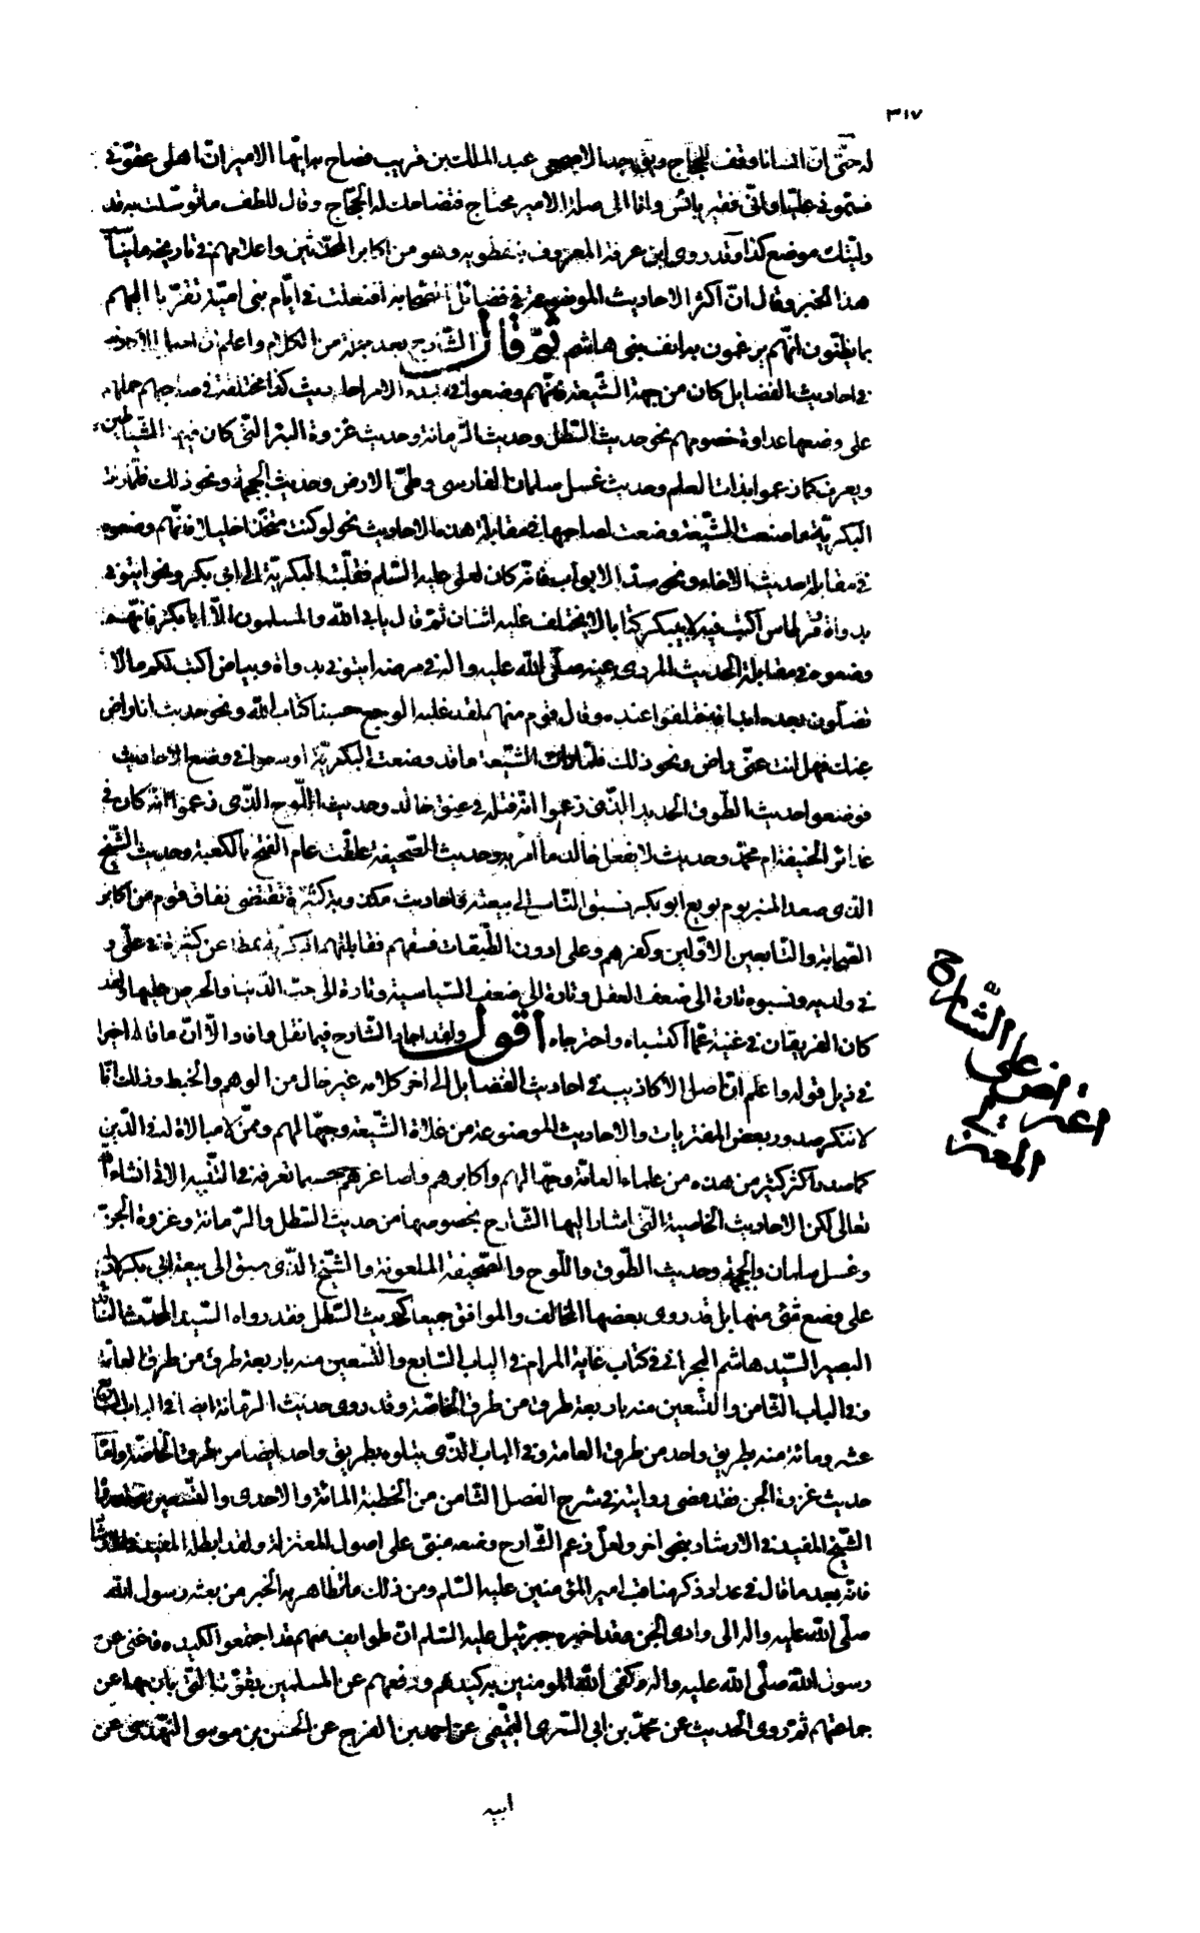 ٣١٧
له حتّى انّ انسانا وقف للحجّاج ويق جد الاصمعى عبد الملك بن قريب فصاح به ايّها الامير انّ اهلى عقوّنى
فسمّونى عليّا وانّى فقير بائس وانا الى صلة الامير محتاج فتضاحك له الحجّاج وقال للطف ما توسّلت به قد
ولّيتك موضع كذا وقد روى ابن عرفة المعروف بنفطويه وهو من اكابر المحدّثين واعلامهم فى تاريخه ما يناسب
هذا الخبر وقال انّ اكثر الاحاديث الموضوعة فى فضائل الصّحابة افتعلت فى ايّام بنى اميّة تقرّبا اليهم
بما يظنّون انّهم يرغمون به انف بنى هاشم ثمّ قال الشّارح بعد جملة من الكلام واعلم انّ اصل الاكاذيب
فى احاديث الفضايل كان من جهة الشّيعة فانّهم وضعوا فى مبدء الامر احاديث كذا مختلفة فى صاحبهم حملهم
على وضعها عداوة خصومهم نحو حديث السّطل وحديث الرّمانة وحديث غزوة البئر الّتى كان فيها الشّياطين
ويعرف كما زعموا بذات العلم وحديث غسل سلمان الفارسى وطىّ الارض وحديث الجمجمة ونحو ذلك فلمّا رات
البكريّة ما صنعت الشّيعة وضعت لصاحبها فى مقابلة هذه الاحاديث نحو لو كنت متّخذا خليلا فانّهم وضعوه
فى مقابلة حديث الاخاء ونحو سدّ الابواب فانّه كان لعلى عليه السّلم فقلّبته البكريّة الى ابى بكر ونحو ايتونى
بدواة وقرطاس اكتب فيه لابيبكر كتابا لا يختلف عليه اثنان ثمّ قال يابى اللّه والمسلمون الّا ابا بكر فانّهم
وضعوه فى مقابلة الحديث المروى عنه صلّى اللّه عليه واله فى مرضه ايتونى بدواة وبياض اكتب لكم ما لا
تضلّون بعده ابدا فاختلفوا عنده وقال قوم منهم لقد غلبه الوجع حسبنا كتاب اللّه ونحو حديث انا راض
عنك فهل انت عنّى راض ونحو ذلك فلمّا رات الشّيعة ما قد وضعت البكريّة اوسعوا فى وضع الاحاديث
فوضعوا حديث الطّوق الحديد الّذى زعموا انّه فتله فى عنق خالد وحديث اللّوح الّذى زعموا انّه كان فى
غدائر الحنيفة ام محمّد وحديث لا يفعل خالد ما امر به وحديث الصّحيفة علّقت عام الفتح بالكعبة وحديث الشّيخ
الذى صعد المنبر يوم بويع ابو بكر فسبق النّاس الى بيعته واحاديث مكذوبة كثيرة تقتضى نفاق قوم من اكابر
الصّحابة والتّابعين الاوّلين وكفرهم وعلى ادون الطّبقات فسقهم فقابلتهم البكريّة بمطاعن كثيرة فى علىّ و
فى ولديه ونسبوه تارة الى ضعف العقل وتارة الى ضعف السّياسية وتارة الى حبّ الدّنيا والحرص عليها ولقد
كان الفريقان فى غنية عمّا اكتسباه واجترحاه اقول ولقد اجاد الشّارح فيما نقل وافاد الّا انّ ما قاله اخيرا
فى ذيل قوله واعلم انّ اصل الاكاذيب فى احاديث الفضايل الى اخر كلامه غير خال من الوهم والخبط وذلك انّا
لا ننكر صدور بعض المفتريات والاحاديث الموضوعة من غلاة الشّيعة وجهّالهم وممّن لا مبالاة له فى الدّين
كما صدر اكثر كثير من هذه من علماء العامّة وجهّالهم واكابرهم واصاغرهم حسبما تعرفه فى التّنبيه الاتى انشاء اللّه
تعالى لكن الاحاديث الخاصية الّتى اشار اليها الشّارح بخصوصها من حديث السّطل والرّمانة وغزوة الجنّ
وغسل سلمان والجمجمة وحديث الطّوق واللّوح والصّحيفة الملعونة والشّيخ الّذى سبق الى بيعة ابى بكر لا دليل
على وضع شئ منها بل قد روى بعضها المخالف والموافق جميعا كحديث السّطل فقد رواه السّيد المحدّث النّاقد
البصير السّيد هاشم البحرانى فى كتاب غاية المرام فى الباب السّابع والتّسعين منه باربعة طرق من طرق العامّة
وفى الباب الثّامن والتّسعين منه باربعة طرق من طرق الخاصّة وقد روى حديث الرّمانة ايضا فى الباب الرّابع
عشر ومائة منه بطريق واحد من طرق العامّة وفى الباب الّذى يتلوه بطريق واحد ايضا من طرق الخاصّة وامّا
حديث غزوة الجن فقد مضى روايته فى شرح الفصل الثّامن من الخطبة المائة والاحدى والتّسعين
الشّيخ المفيد فى الارشاد بنحو اخر ولعلّ زعم الشّارح وضعه مبنىّ على اصول المعتزلة ولقد ابطله المفيد
فانّه بعد ما قال فى عداد ذكر مناقب امير المؤمنين عليه السّلم ومن ذلك ما تظاهر به الخبر من بعثه رسول اللّه
صلّى اللّه عليه واله الى وادى الجن وقد اخبره جبرئيل عليه السّلم انّ طوايف منهم قد اجتمعوا لكيده فاغنى عن
رسول اللّه صلّى اللّه عليه واله وكفى اللّه المومنين به كيدهم ودفعهم عن المسلمين بقوّته الّتى بان بها عن
جماعتهم ثمّ روى الحديث عن محمّد بن ابى السّرى التّميمى عن احمد بن الفرج عن الحسن بن موسى النّهدى عن
ابيه
اعتراض
على الشّارح
المعتزلى